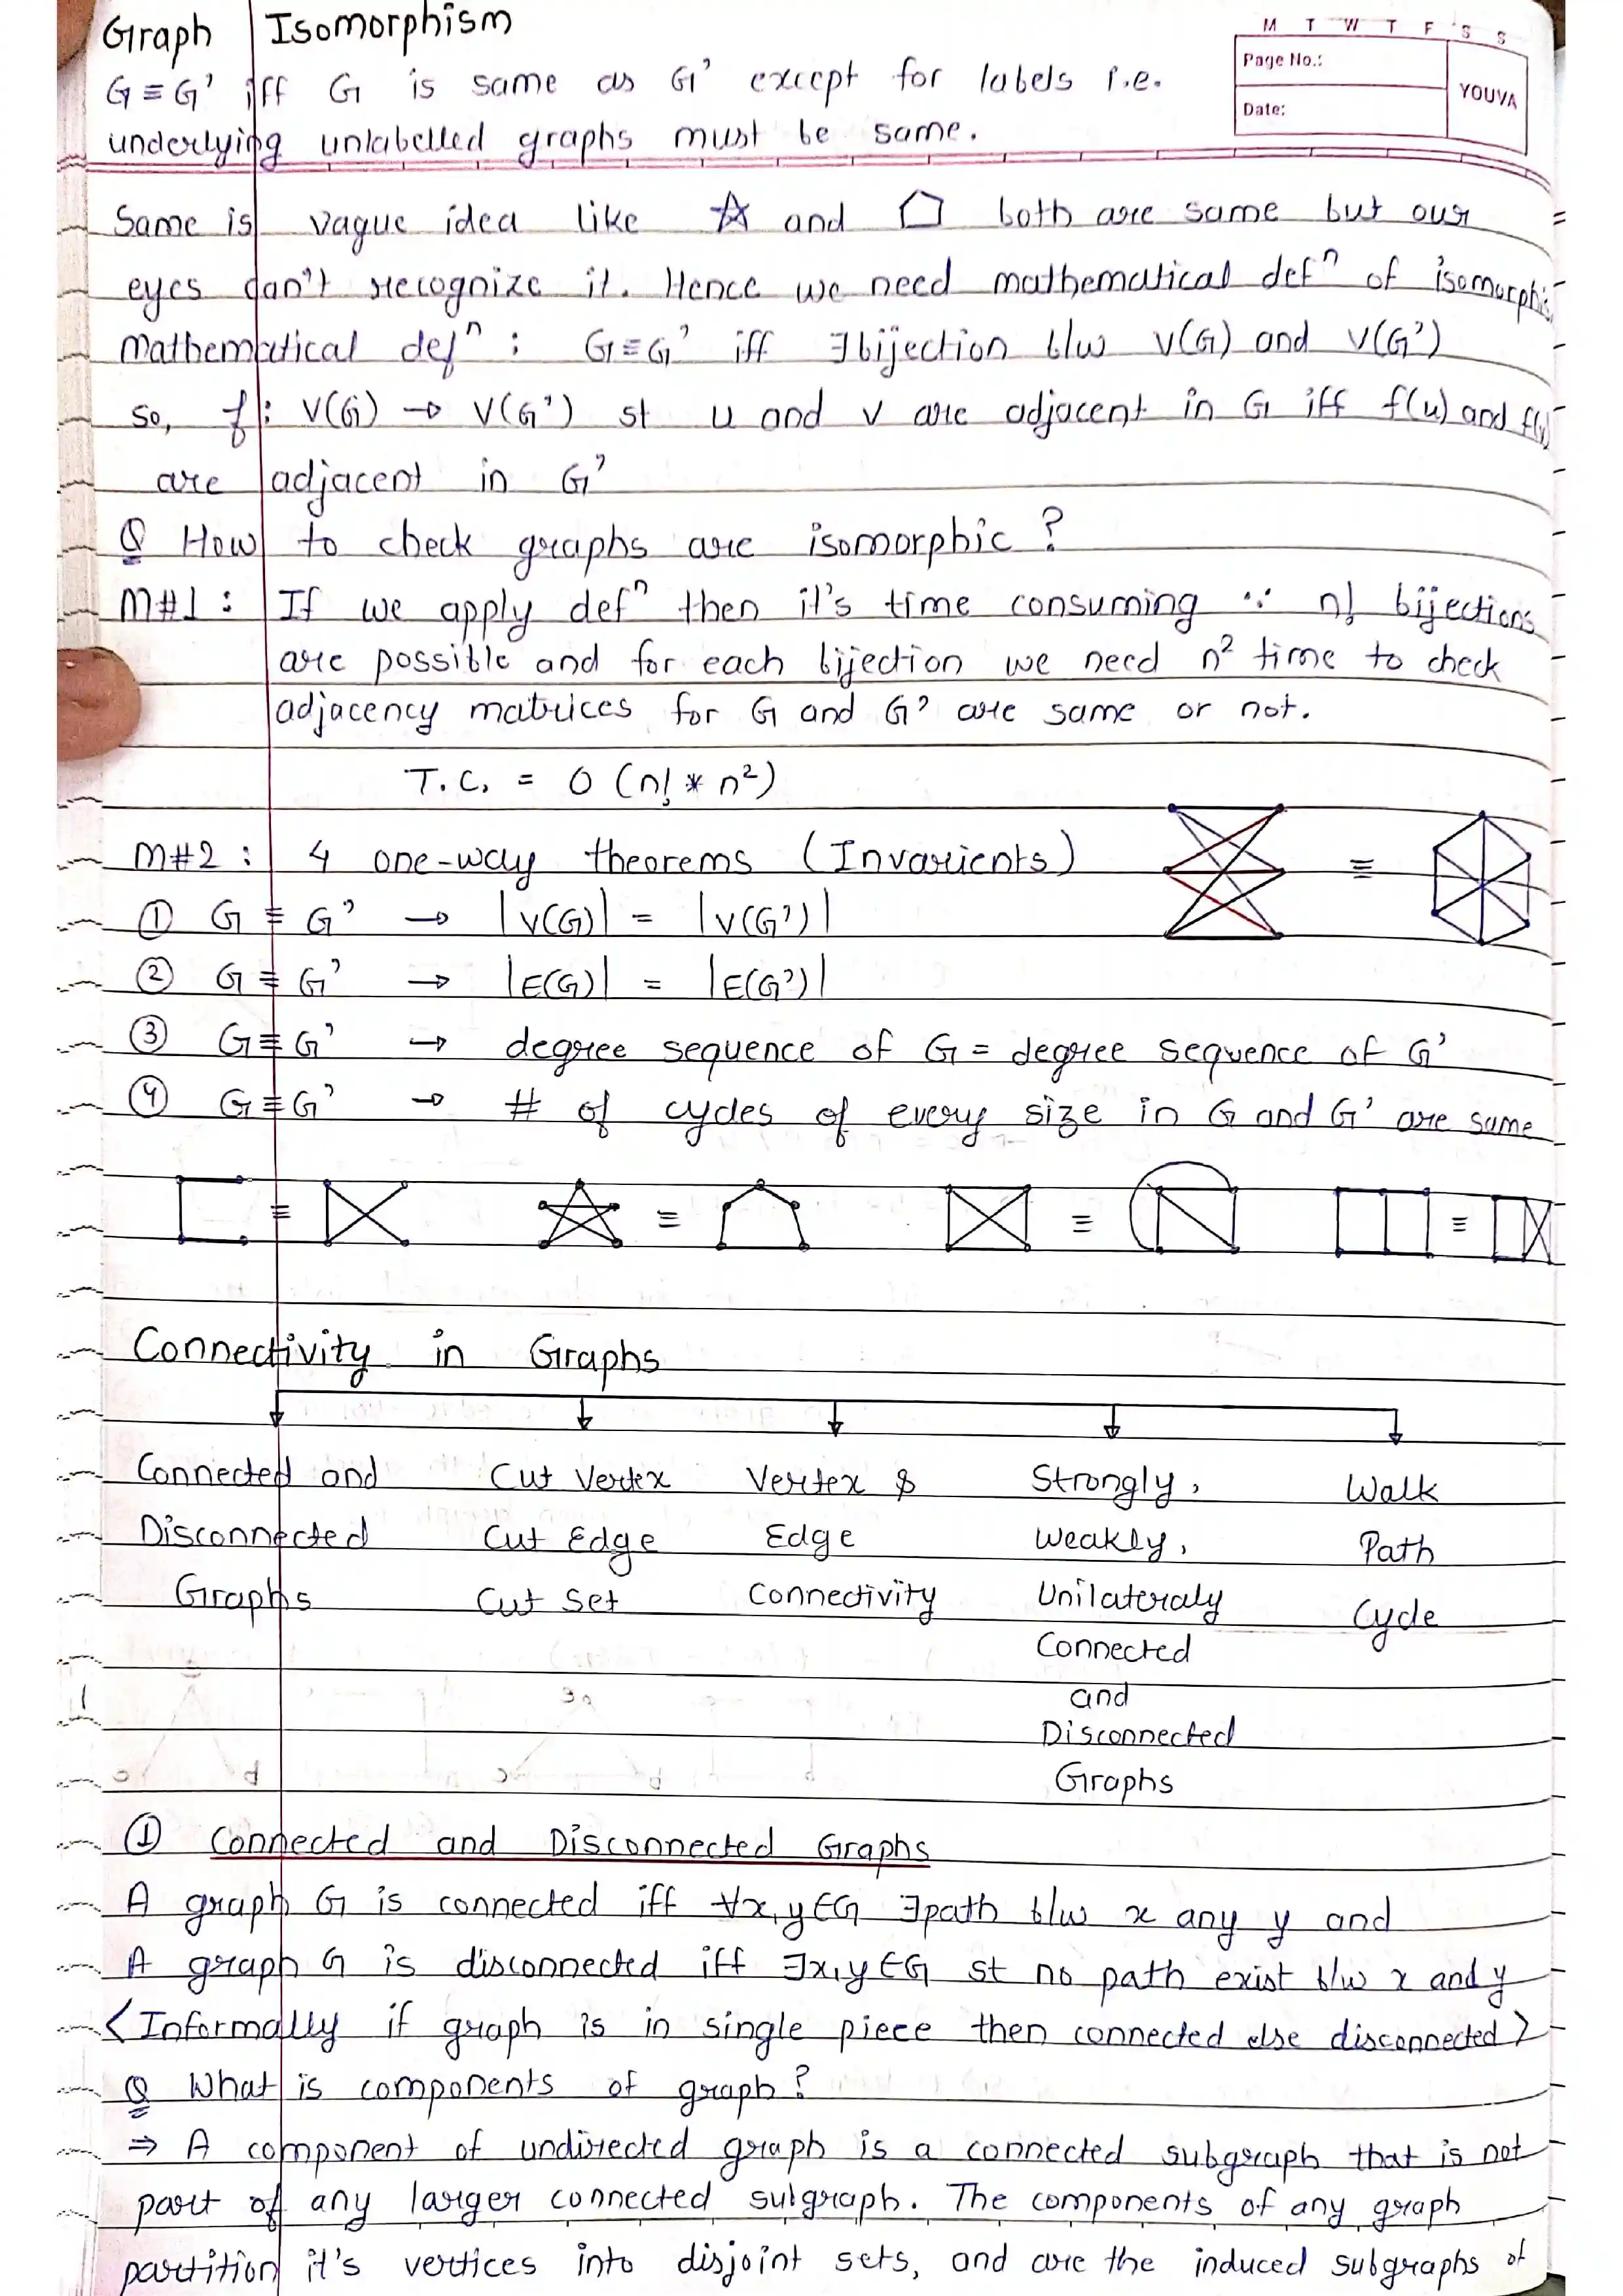 Graph Isomorphism
M T W T F S S
Page No.:
Date:
YOUVA
G ≡ G' iff G is same as G' except for labels i.e.
underlying unlabelled graphs must be same.
Same is vague idea like ☆ and ⬠ both are same but our
eyes can't recognize it. Hence we need mathematical defⁿ of isomorphis
Mathematical defⁿ : G ≡ G' iff ∃ bijection b/w V(G) and V(G')
so, f : V(G) → V(G') st u and v are adjacent in G iff f(u) and f(v)
are adjacent in G'
Q How to check graphs are isomorphic ?
M#1 : If we apply defⁿ then it's time consuming ∵ n! bijections
are possible and for each bijection we need n² time to check
adjacency matrices for G and G' are same or not.
T.C. = O (n! * n²)
M#2 : 4 one-way theorems (Invarients)
≡
① G ≡ G' → |V(G)| = |V(G')|
② G ≡ G' → |E(G)| = |E(G')|
③ G ≡ G' → degree sequence of G = degree sequence of G'
④ G ≡ G' → # of cycles of every size in G and G' are same
≡ ≡ ≡ ≡
Connectivity in Graphs
Connected and Disconnected Graphs
Cut Vertex Cut Edge Cut Set
Vertex & Edge Connectivity
Strongly, Weakly, Unilateraly Connected and Disconnected Graphs
Walk Path Cycle
① Connected and Disconnected Graphs
A graph G is connected iff ∀x,y∈G ∃path b/w x any y and
A graph G is disconnected iff ∃x,y∈G st no path exist b/w x and y
<Informally if graph is in single piece then connected else disconnected>
Q What is components of graph ?
⇒ A component of undirected graph is a connected subgraph that is not
part of any larger connected subgraph. The components of any graph
partition it's vertices into disjoint sets, and are the induced subgraphs of